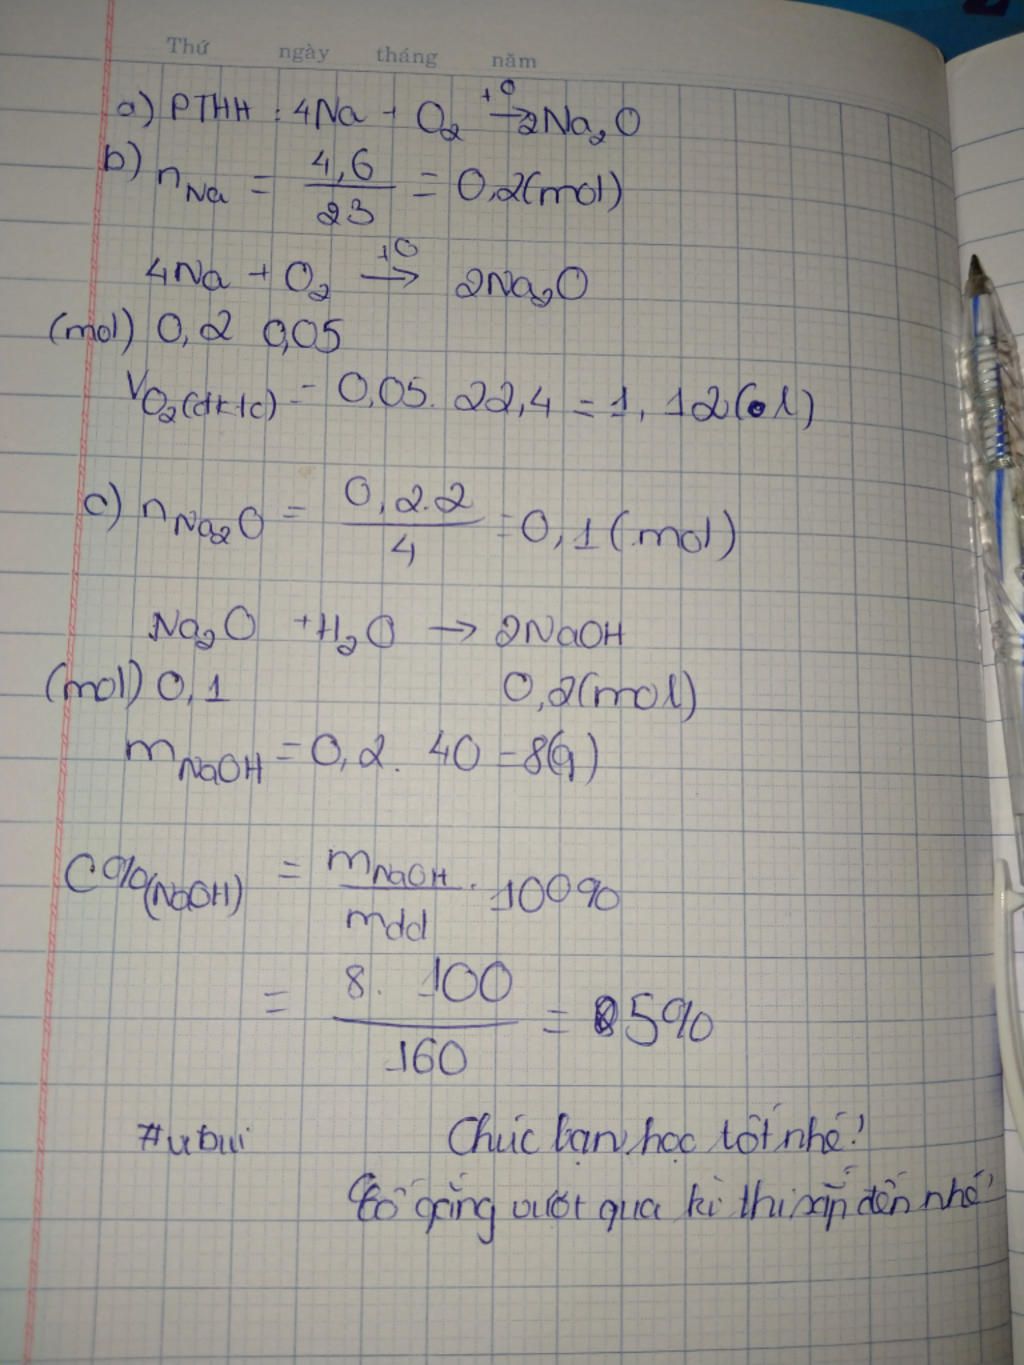 Thứ ngày tháng năm
a) PTHH : 4Na + O₂ →(t⁰) 2Na₂O
b) nNa = 4,6/23 = 0,2(mol)
4Na + O₂ →(t⁰) 2Na₂O
(mol) 0,2 0,05
VO₂(đktc) = 0,05. 22,4 = 1,12(l)
c) nNa₂O = 0,2.2/4 = 0,1(mol)
Na₂O + H₂O → 2NaOH
(mol) 0,1 0,2(mol)
mNaOH = 0,2. 40 = 8(g)
C%(NaOH) = mNaOH/mdd . 100%
= 8. 100/160 = 5%
#ubui Chúc bạn học tốt nhé!
Cố gắng vượt qua kì thi sắp đến nhé!